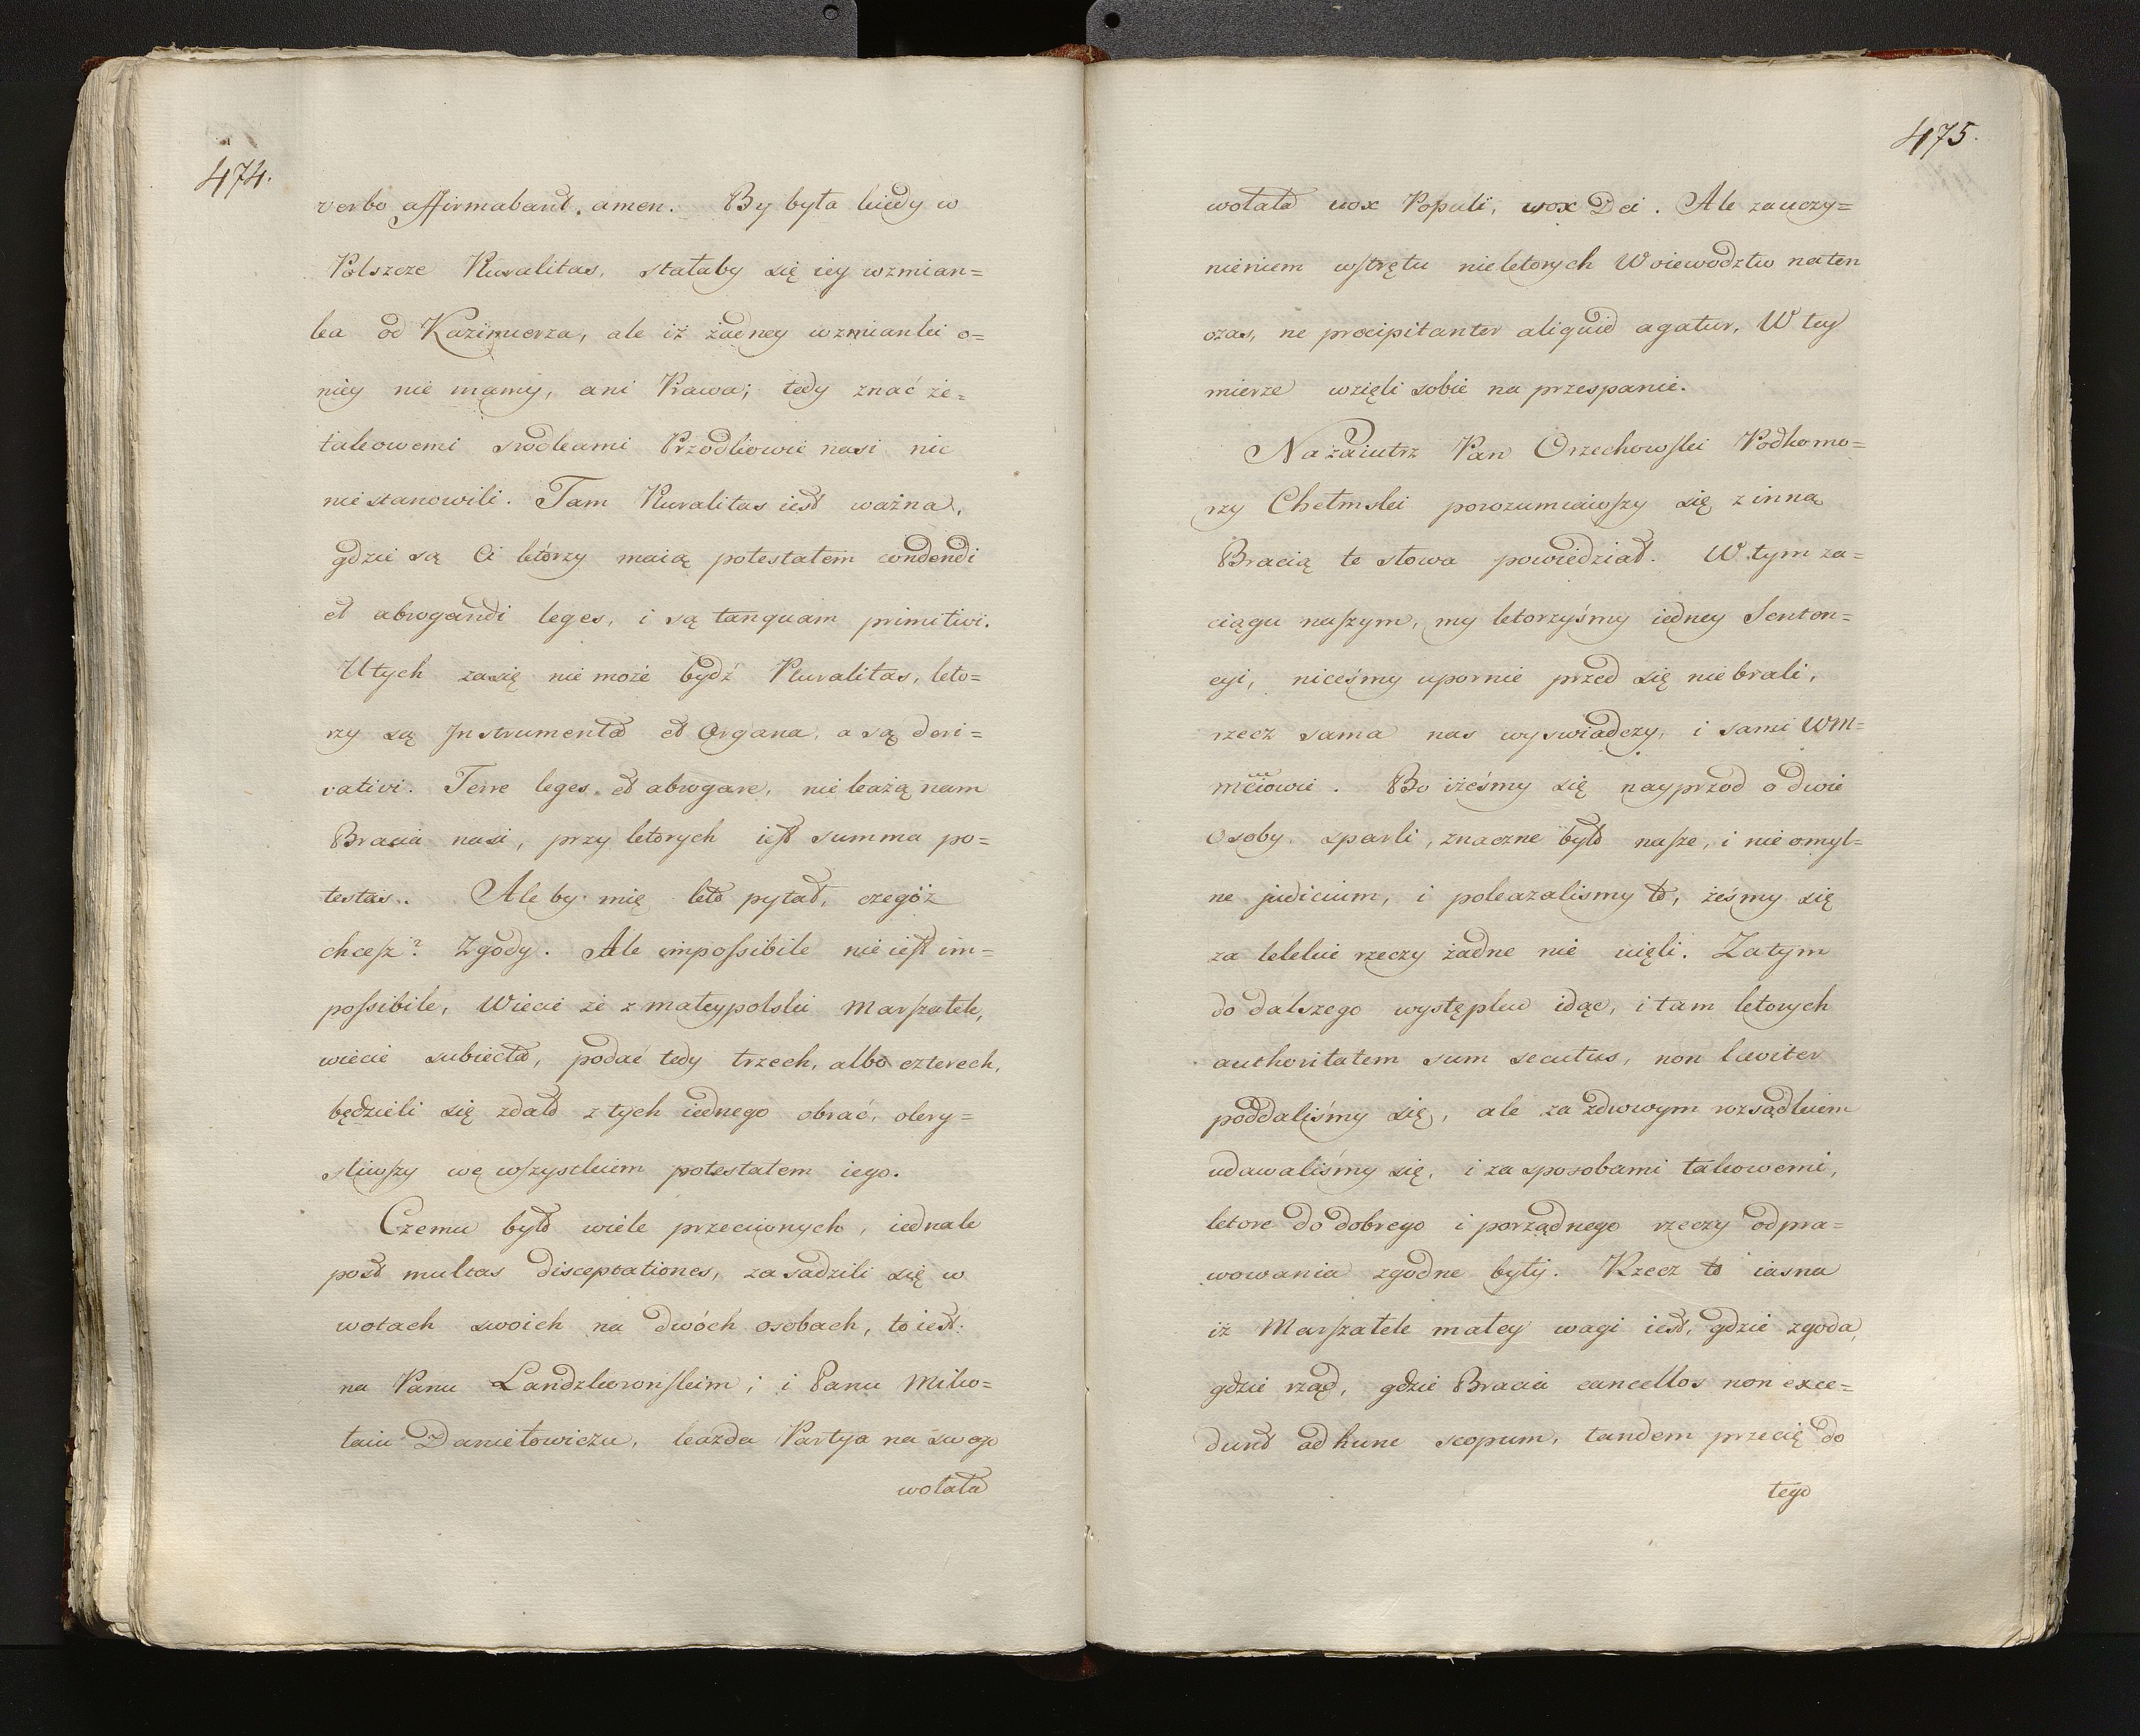 474.
verbo affirmabant. amen. By była kiedy w
Polszcze Pluralitas, stałaby się iey wzmian=
ka od Kazimierza, ale iż żadney wzmianki o=
niey nie mamy, ani Prawa; tedy znać że=
takowemi srodkami Przodkowie nasi nic
nie stanowili. Tam Pluralitas iest ważna,
gdzie są Ci którzy maią potestatem condendi
et abrogandi leges, i są tanquam primitivi.
U tych zasię nie może bydź Pluralitas, kto=
rzy są Instrumenta et Organa, a są deri=
vativi. Ferre leges et abrogare, nie każą nam
Bracia nasi, przy ktorych iest summa po=
testas. Ale by mię kto pytał, czegóż
chcesz? Zgody. Ale impossibile nie iest im=
possibile, Wiecie że z małeypolski Marszałek,
wiecie subiecta, podać tedy trzech, albo czterech,
będzieli się zdało z tych iednego obrać, okry=
sliwszy we wszystkiem potestatem iego.
Czemu było wiele przeciwnych, iednak
post multas disceptationes, zasadzili się w
wotach swoich na dwóch osobach, to iest:
na Panu Landzkoronskim; i Panu Miko=
łaiu Daniełowiczu, każda Partya na swego
wołała
475.
wołała vox Populi, vox Dei. Ale za uczy=
nieniem wstrętu niektorych Woiewodztw na ten
czas, ne praecipitanter aliquid agatur, W tey
mierze wzięli sobie na przespanie.
Na zaiutrz Pan Orzechowski Podkomo=
rzy Chełmski porozumiawszy się z inną
Bracią te słowa powiedział. W tym za=
ciągu naszym, my ktorzyśmy iedney Senten=
cyi, niceśmy upornie przed się nie brali,
rzecz sama nas wyswiadczy, i sami WM=
mciowie. Bo iżeśmy się nayprzod o dwie
Osoby sparli, znaczne było nasze, i nie omyl=
ne judicium, i pokazalismy to, żeśmy się
za lekkie rzeczy żadne nie uięli. Zatym
do dalszego występku idąc, i tam ktorych
authoritatem sum secutus, non leviter
poddaliśmy się, ale za zdrowym rozsądkiem
udawaliśmy się, i za sposobami takowemi,
ktore do dobrego i porządnego rzeczy odpra=
wowania zgodne były. Rzecz to iasna
iż Marszałek małey wagi iest, gdzie zgoda,
gdzie rząd, gdzie Bracia cancellos non exce=
dunt ad hunc scopum, tandem przecię do
tego